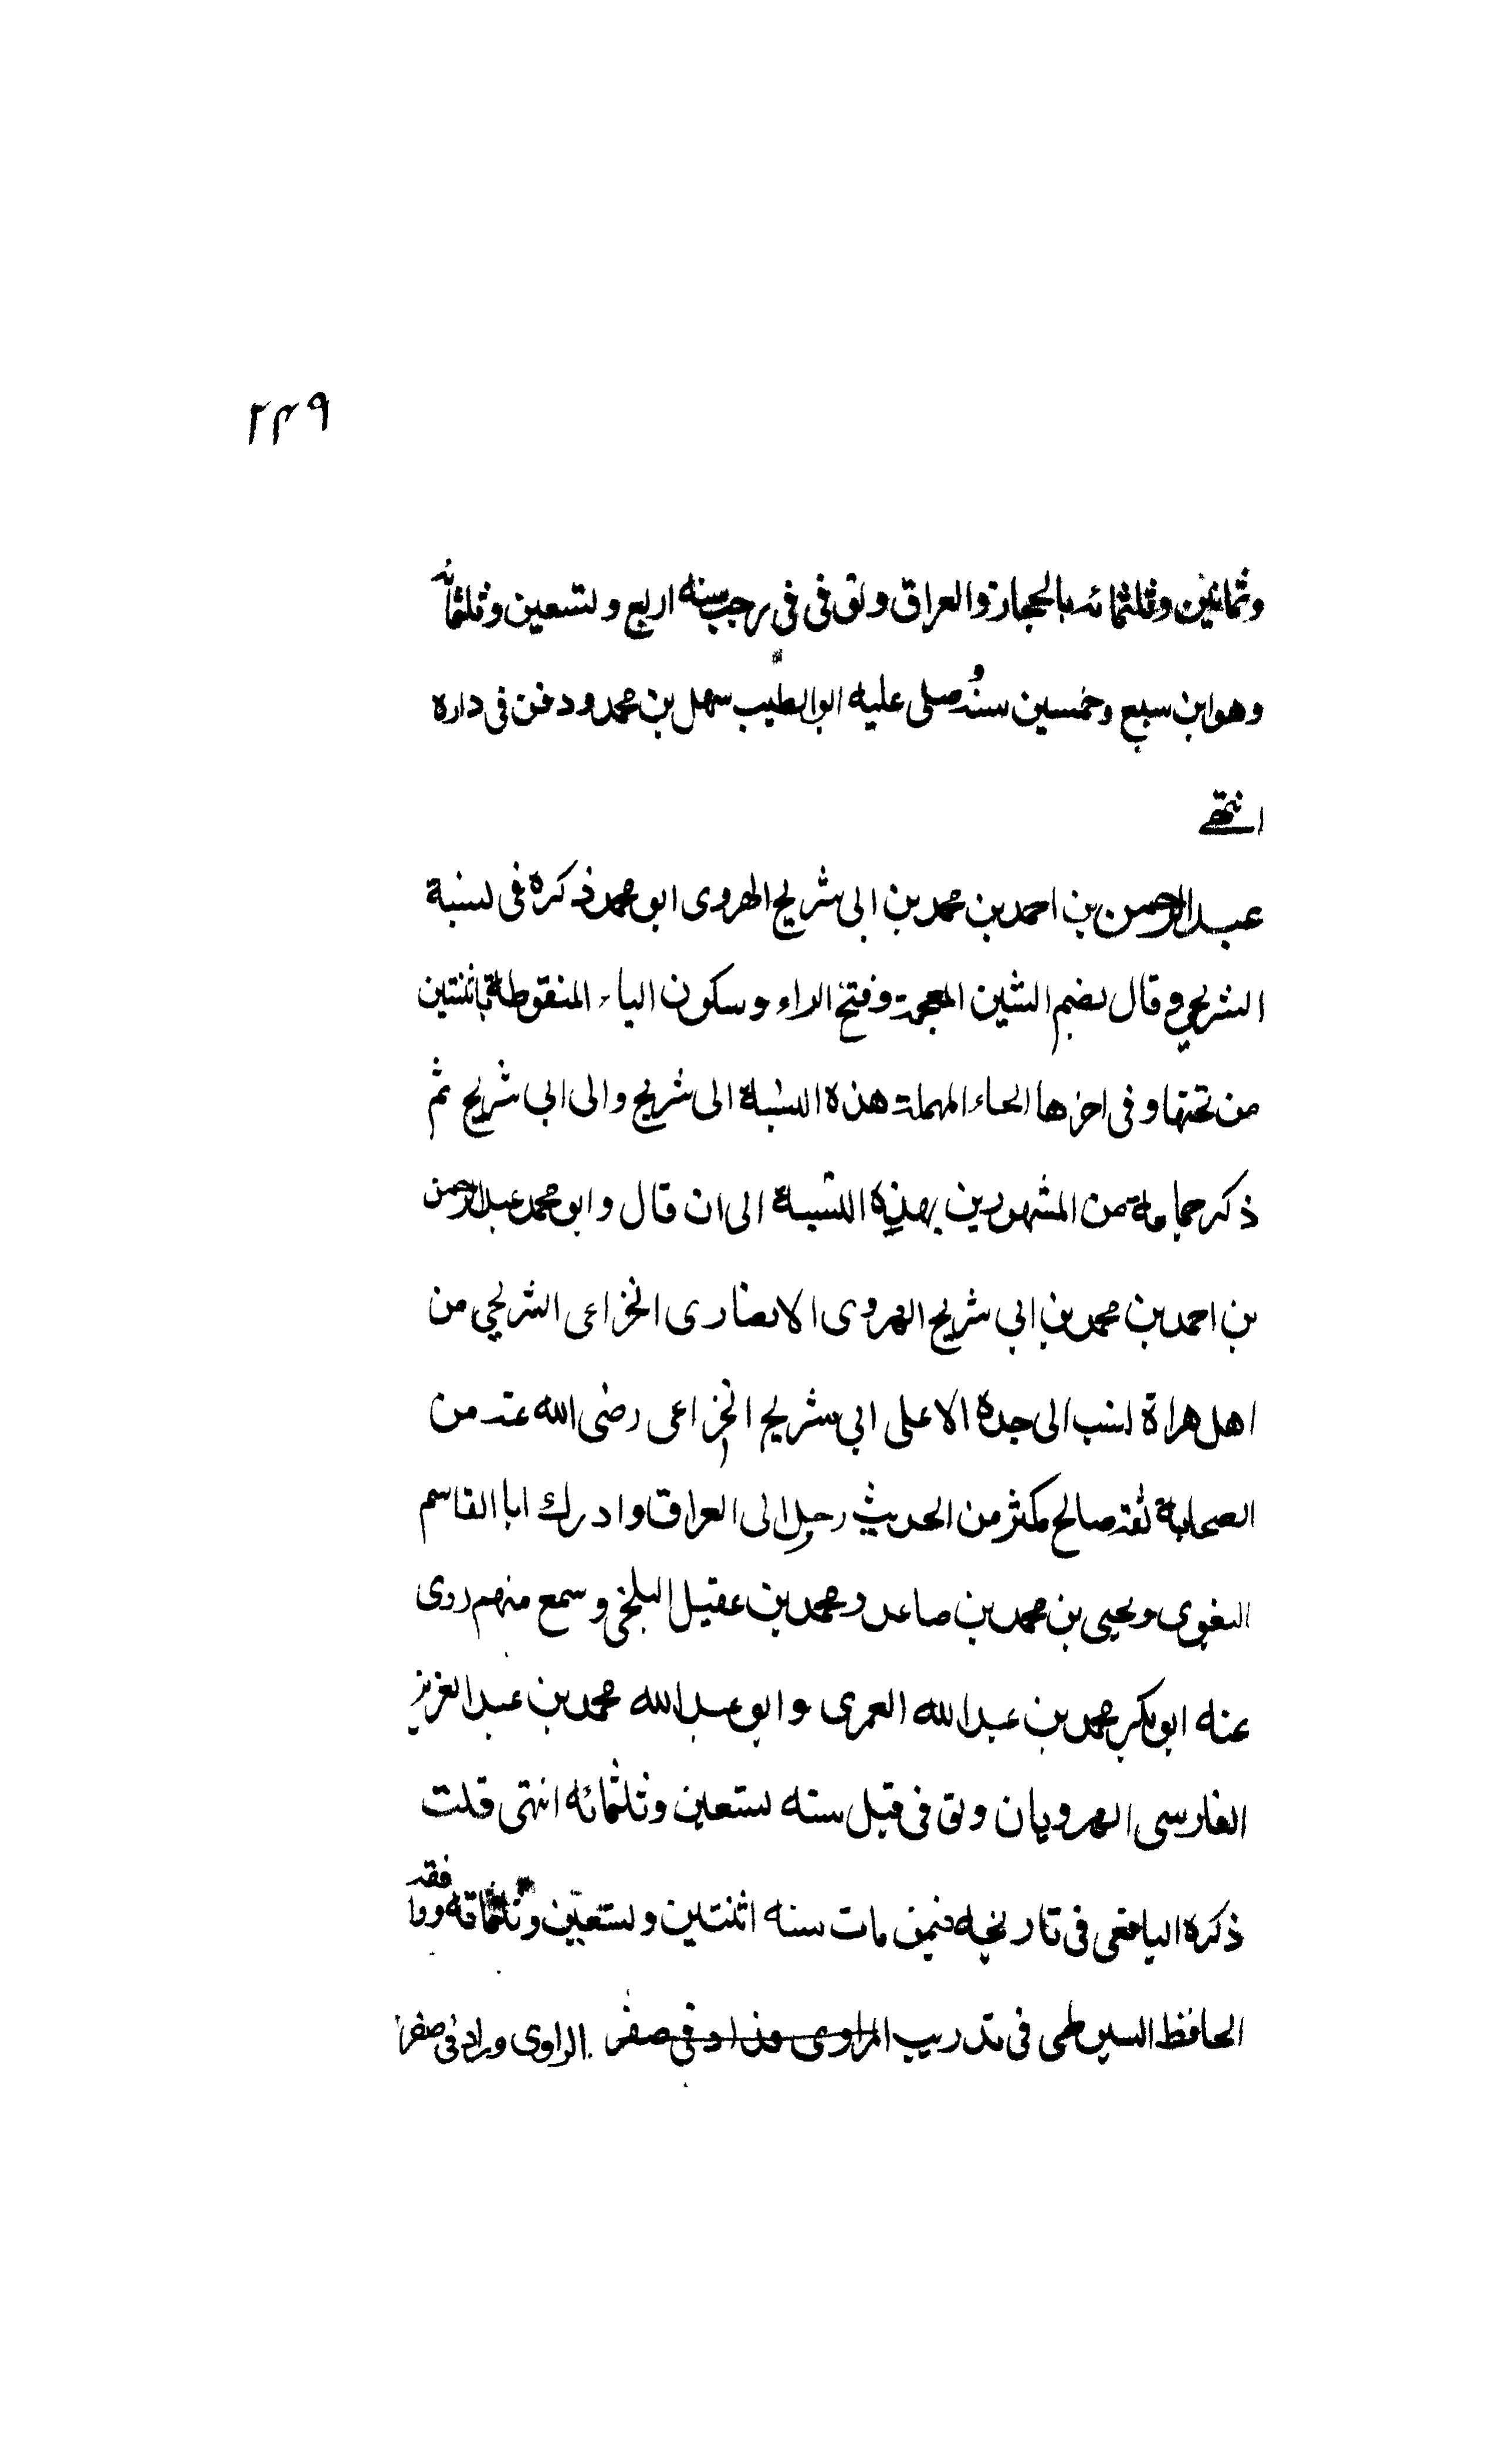 ٢٤٩
وثمانين وثلثمائه بالحجاز والعراق وتوفى فى رجب سنه اربع وتسعين وثلثمائه
وهو ابن سبع وخمسين سنة وصلى عليه ابو الطيب سهل بن محمد ودفن فى داره
انتهى
عبد الرحمن بن احمد بن محمد بن ابى شريح الهروى ابو محمد ذكره فى نسبة
الشريحى وقال بضم الشين المعجمة وفتح الراء وسكون الياء المنقوطة باثنتين
من تحتها وفى اخرها الحاء المهملة هذه النسبة الى شريح والى ابى شريح ثم
ذكر جماعة من المشهورين بهذه النسبة الى ان قال وابو محمد عبد الرحمن
بن احمد بن محمد بن ابى شريح الهروى الانصارى الخزاعى الشريحي من
اهل هراة نسب الى جده الاعلى ابى شريح الخزاعى رضى الله عنه من
الصحابة ثقة صالح مكثر من الحديث رحل الى العراق وادرك ابا القاسم
البغوى ويحيى بن محمد بن صاعد ومحمد بن عقيل البلخى وسمع منهم روى
عنه ابو بكر محمد بن عبد الله العمرى وابو عبد الله محمد بن عبد العزيز
الفارسى الهرويان وتوفى قبل سنه تسعين وثلثمائه انتهى قلت
ذكره اليافعى فى تاريخه فيمن مات سنه اثنتين وتسعين وثلثمائة ووافقه
الحافظ السيوطى فى تدريب المراوى وزاد فى صفر الراوى وزاد فى صفر